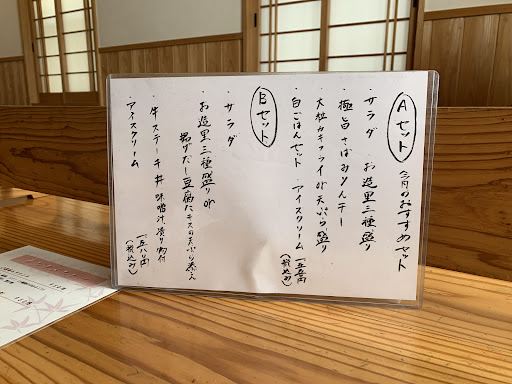 Aセット 今月のおすすめセット
・サラダ ・お造里三種盛り
・極旨さばみりん干し
大粒カキフライor天ぷら盛り
白ごはんセット ・アイスクリーム
(税込み)
Bセット
・サラダ
お造里三種盛りor
揚げだし豆腐 キスの天ぷら添え
・牛ステーキ丼 味噌汁、漬り物付
・アイスクリーム
一五八〇円
(税込み)